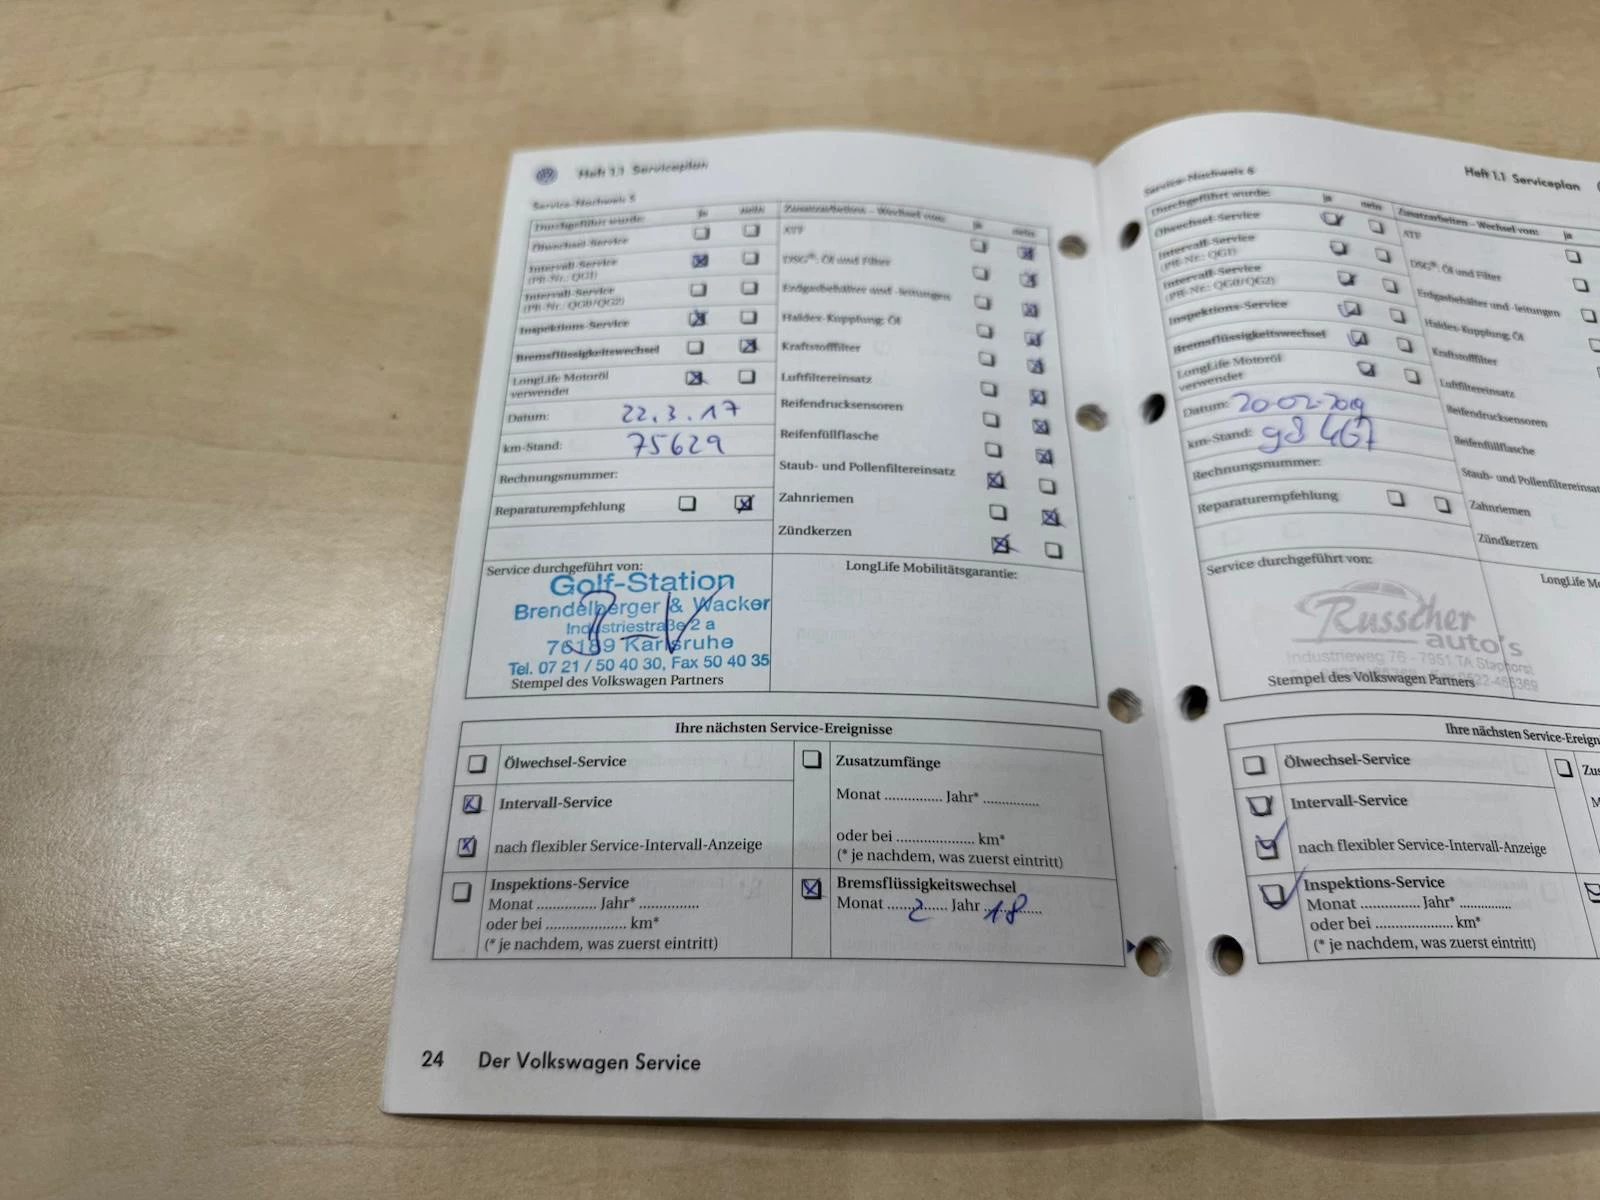 Heft 1.1 Serviceplan
Service-Nachweis 5
Durchgeführt wurde: ja nein
Ölwechsel-Service
Intervall-Service
(PR-Nr.: QG1)
Intervall-Service
(PR-Nr.: QG0/QG2)
Inspektions-Service
Bremsflüssigkeitswechsel
LongLife Motoröl
verwendet
Datum: 22.3.17
km-Stand: 75629
Rechnungsnummer:
Reparaturempfehlung
Zusatzarbeiten - Wechsel von: ja nein
ATF
DSG®: Öl und Filter
Erdgasbehälter und -leitungen
Haldex-Kupplung: Öl
Kraftstofffilter
Luftfiltereinsatz
Reifendrucksensoren
Reifenfüllflasche
Staub- und Pollenfiltereinsatz
Zahnriemen
Zündkerzen
Service durchgeführt von:
Golf-Station
Brendelberger & Wacker
Industriestraße 2 a
76189 Karlsruhe
Tel. 07 21 / 50 40 30, Fax 50 40 35
Stempel des Volkswagen Partners
LongLife Mobilitätsgarantie:
Ihre nächsten Service-Ereignisse
Ölwechsel-Service
Intervall-Service
nach flexibler Service-Intervall-Anzeige
Inspektions-Service
Monat ............... Jahr* ...............
oder bei .................... km*
(* je nachdem, was zuerst eintritt)
Zusatzumfänge
Monat ............... Jahr* ..............
oder bei .................... km*
(* je nachdem, was zuerst eintritt)
Bremsflüssigkeitswechsel
Monat ....2.... Jahr ...18...
24 Der Volkswagen Service
Heft 1.1 Serviceplan
Service-Nachweis 6
Durchgeführt wurde: ja nein
Ölwechsel-Service
Intervall-Service
(PR-Nr.: QG1)
Intervall-Service
(PR-Nr.: QG0/QG2)
Inspektions-Service
Bremsflüssigkeitswechsel
LongLife Motoröl
verwendet
Datum: 20-02-2019
km-Stand: 98 467
Rechnungsnummer:
Reparaturempfehlung
Zusatzarbeiten - Wechsel von: ja
ATF
DSG®: Öl und Filter
Erdgasbehälter und -leitungen
Haldex-Kupplung: Öl
Kraftstofffilter
Luftfiltereinsatz
Reifendrucksensoren
Reifenfüllflasche
Staub- und Pollenfiltereinsatz
Zahnriemen
Zündkerzen
Service durchgeführt von:
Russcher
auto's
Industrieweg 76 - 7951 TA Staphorst
Stempel des Volkswagen Partners
LongLife
Ihre nächsten
Ölwechsel-Service
Intervall-Service
nach flexibler Service-Intervall-Anzeige
Inspektions-Service
Monat ............... Jahr* .............
oder bei .................... km*
(* je nachdem, was zuerst eintritt)